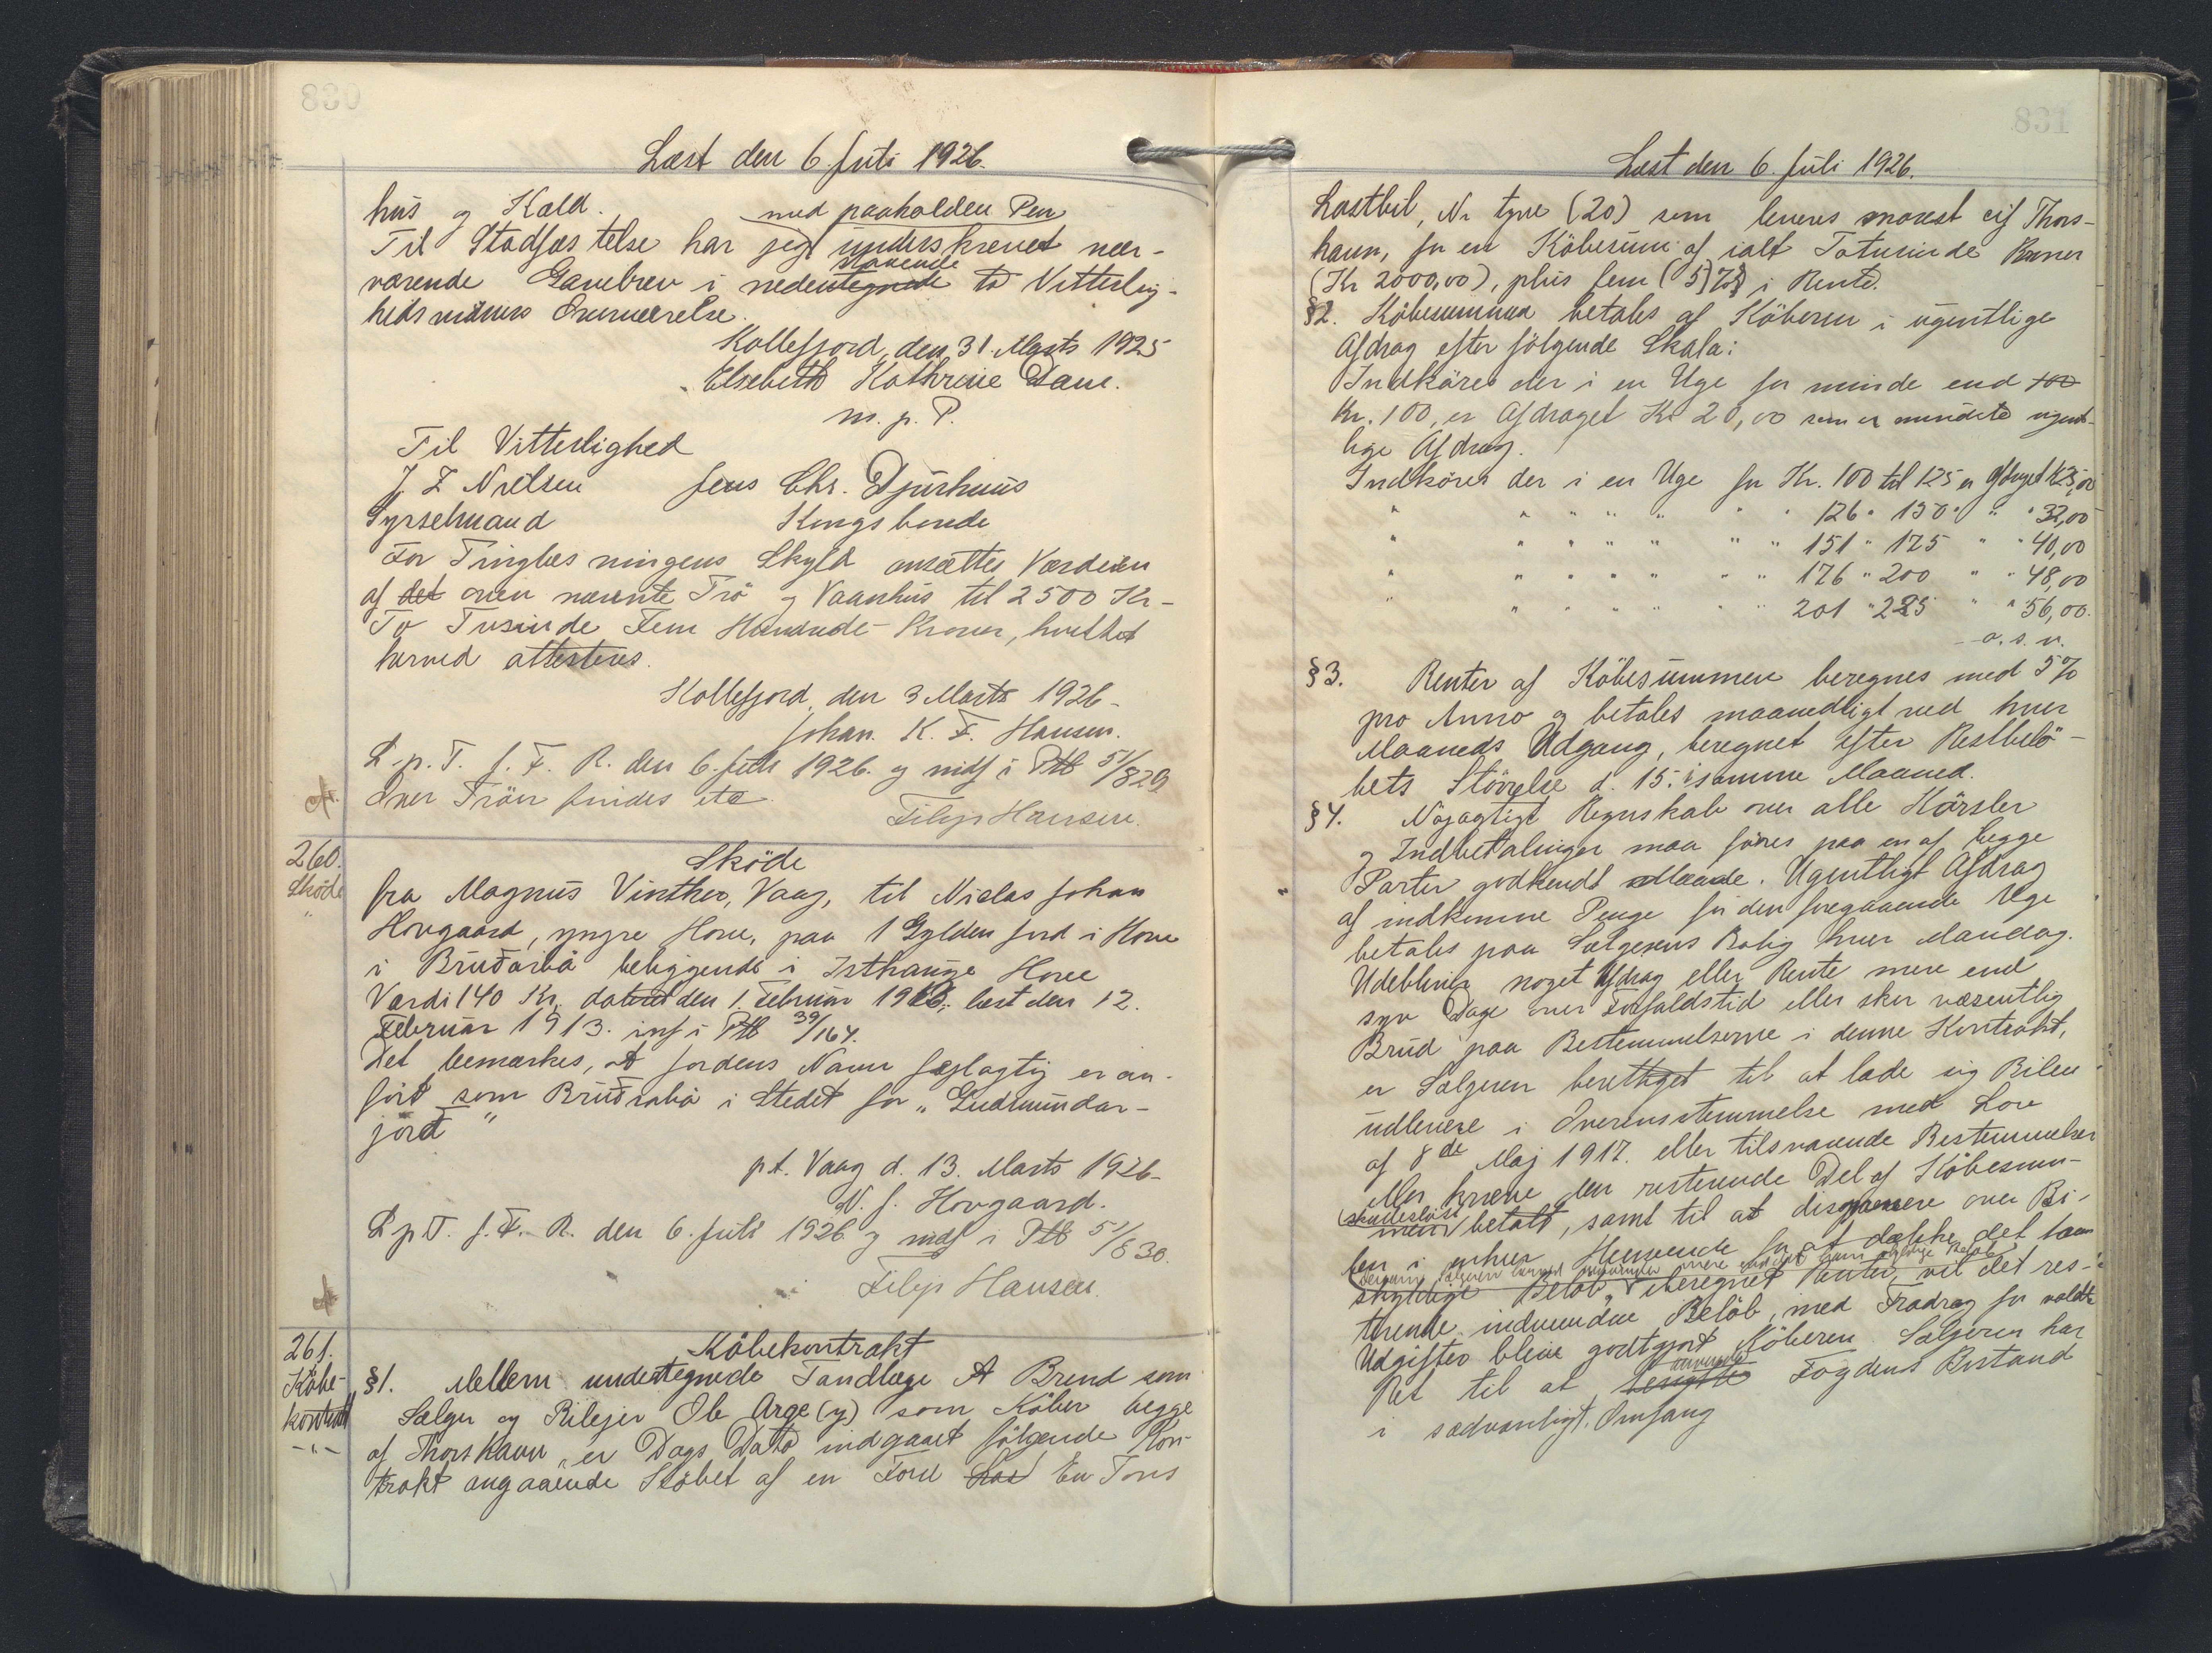 830
Læst den 6. Juli 1926.
hus og Kald.
med paaholden Pen
Til Stadfæstelse har jeg underskrevet nær-
værende Gavebrev i nedentegnede to Vitterlig-
hedsmænds Overværelse.
Kollefjord, den 31. Marts 1925
Elsebeth Kathrine Dam.
m. p. P.
Til Vitterlighed
J Z Nielsen Jens Chr. Djurhuus
Sysselmand Kongsbonde
For Tinglæsningens Skyld ansættes Værdien
af det oven nævnte Trö og Vaanhus til 2500 Kr-
To Tusinde Fem Hundrede Kroner, hvilket
herved attesteres.
Kollefjord, den 3 Marts 1926-
Johan. K. F. Hansen.
L. p. T. f. F. R. den 6. Juli 1926. og indf i Ptb 51/829
Over Tröen findes itc
Filip Hansen.
260.
Sköde
Sköde
fra Magnus Vinther, Vaag, til Niclas Johan
Hovgaard, yngre Hove, paa 1 Gylden Jord i Hove
i Bruðarbö beliggende i Isthauge Hove
Værdi 140 Kr, dateret den 1. Februar 1913; læst den 12.
Februar 1913. inf i Ptb 39/164.
Det bemærkes, at Jordens Navn fejlagtig er an-
fört som Bruðrabö i Stedet for "Gudmundar-
jørð"
pt. Vaag d. 13. Marts 1926-
N. J. Hovgaard.
L. p. T. f. F. R. den 6. Juli 1926 og indf i Ptb 51/830.
Filip Hansen.
261.
Köbekontrakt
Köbe-
kontrakt
§1. Mellem undertegnede Tandlæge A Brend som
Sælger og Bilejer Ole Arge (y) som Köber begge
af Thorshavn, er Dags Dato indgaaet fölgende Kon-
trakt angaaende Köbet af en Ford Las En Tons
831
Læst den 6. Juli 1926.
Lastbil, Nr tyve (20) som leveres snarest cif Thors-
havn, for en Köbesum af ialt Totusinde Kroner
(Kr 2000,00), plus fem (5)% i Rente.
§2. Köbesummen betales af Köberen i ugentlige
Afdrag efter fölgende Skala:
Indköres der i en Uge for mindre end 100
Kr. 100, er Afdraget Kr 20,00 som er mindste ugent-
lige Afdrag.
Indköres der i en Uge for Kr. 100 til 125 er Afdraget K25,00
" " " " " " " 126 " 150 " " " 32,00
" " " " " " " 151 " 175 " " 40,00
" " " " " " " 176 " 200 " " 48,00
" " " " " " " 201 " 225 " " 56,00.
o. s. v.
§3. Renter af Köbesummen beregnes med 5%
pro Anno og betales maanedligt ved hver
Maaneds Udgang, beregnet efter Restbelö-
bets Störrelse d. 15. i samme Maaned.
§4. Nöjagtigt Regnskab over alle Körsler
og Indbetalinger maa föres paa en af begge
Parter godkendt Maade. Ugentligt Afdrag
af indkomne Penge for den foregaaende Uge
betales paa Sælgerens Bolig hver Mandag.
Udebliver noget Afdrag eller Rente mere end
syv Dage over Forfaldstid eller sker væsentlig
Brud paa Bestemmelserne i denne Kontrakt,
er Sælgeren berettiget til at lade sig Bilen
udlevere i Overensstemmelse med Lov
af 8de Maj 1917. eller tilsvarende Bestemmelser
eller kræve den resterende Del af Köbesum-
skadeslöst
men betalt, samt til at disponere over Bi-
len i enhver Henseende for at dække det ham
skyldige Belöb, beregnet Renter, vil det res-
terende indvundne Belöb, med Fradrag for voldte
Udgifter blive godtgjort Köberen. Sælgeren har
anvende
Ret til at benytte Fogdens Bistand
i sædvanligt Omfang